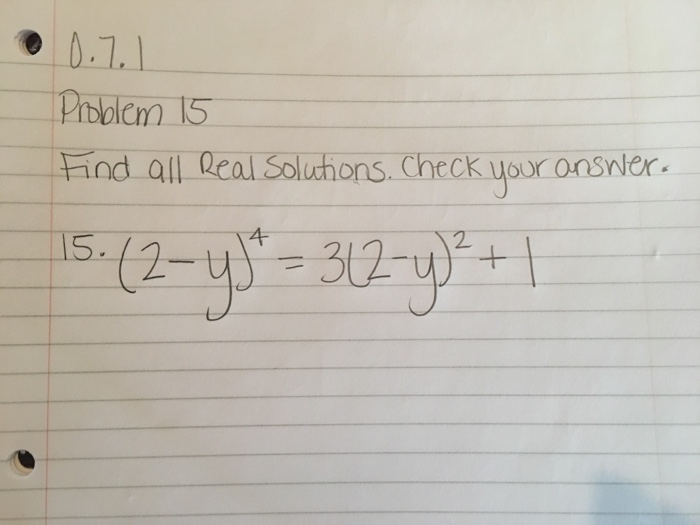 0.7.1
Problem 15
Find all Real Solutions. Check your answer.
15. (2-y)⁴ = 3(2-y)² + 1